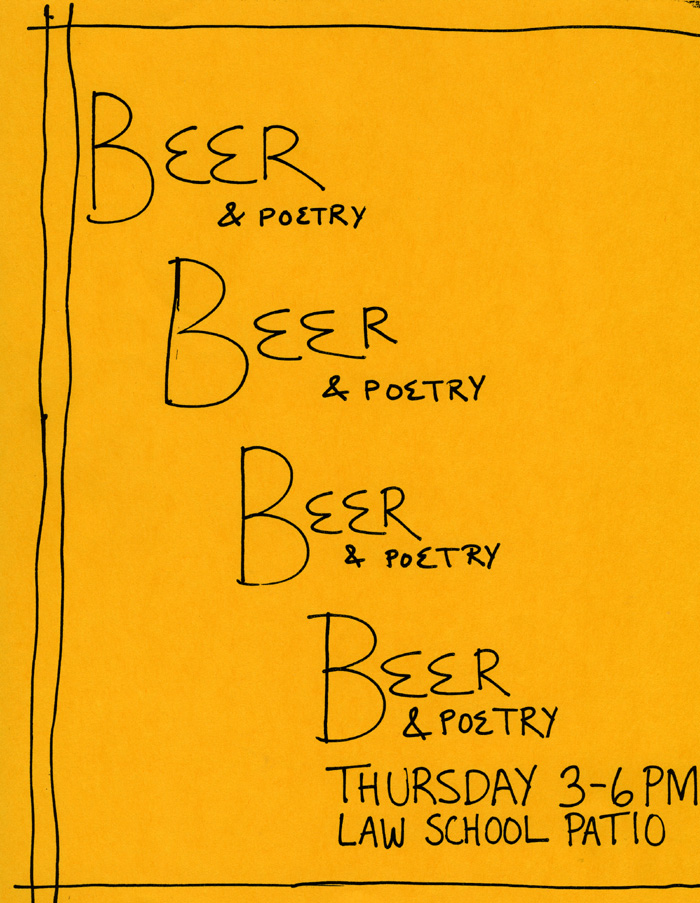 BEER
& POETRY
BEER
& POETRY
BEER
& POETRY
BEER
& POETRY
THURSDAY 3-6 PM
LAW SCHOOL PATIO